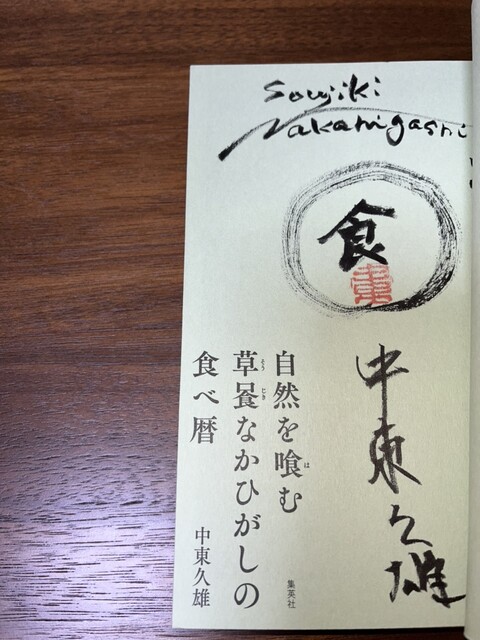 Soujiki
Nakahigashi
食
東
中東久雄
自然を喰む
は
草喰なかひがしの
そう
じき
食べ暦
中東久雄
集英社